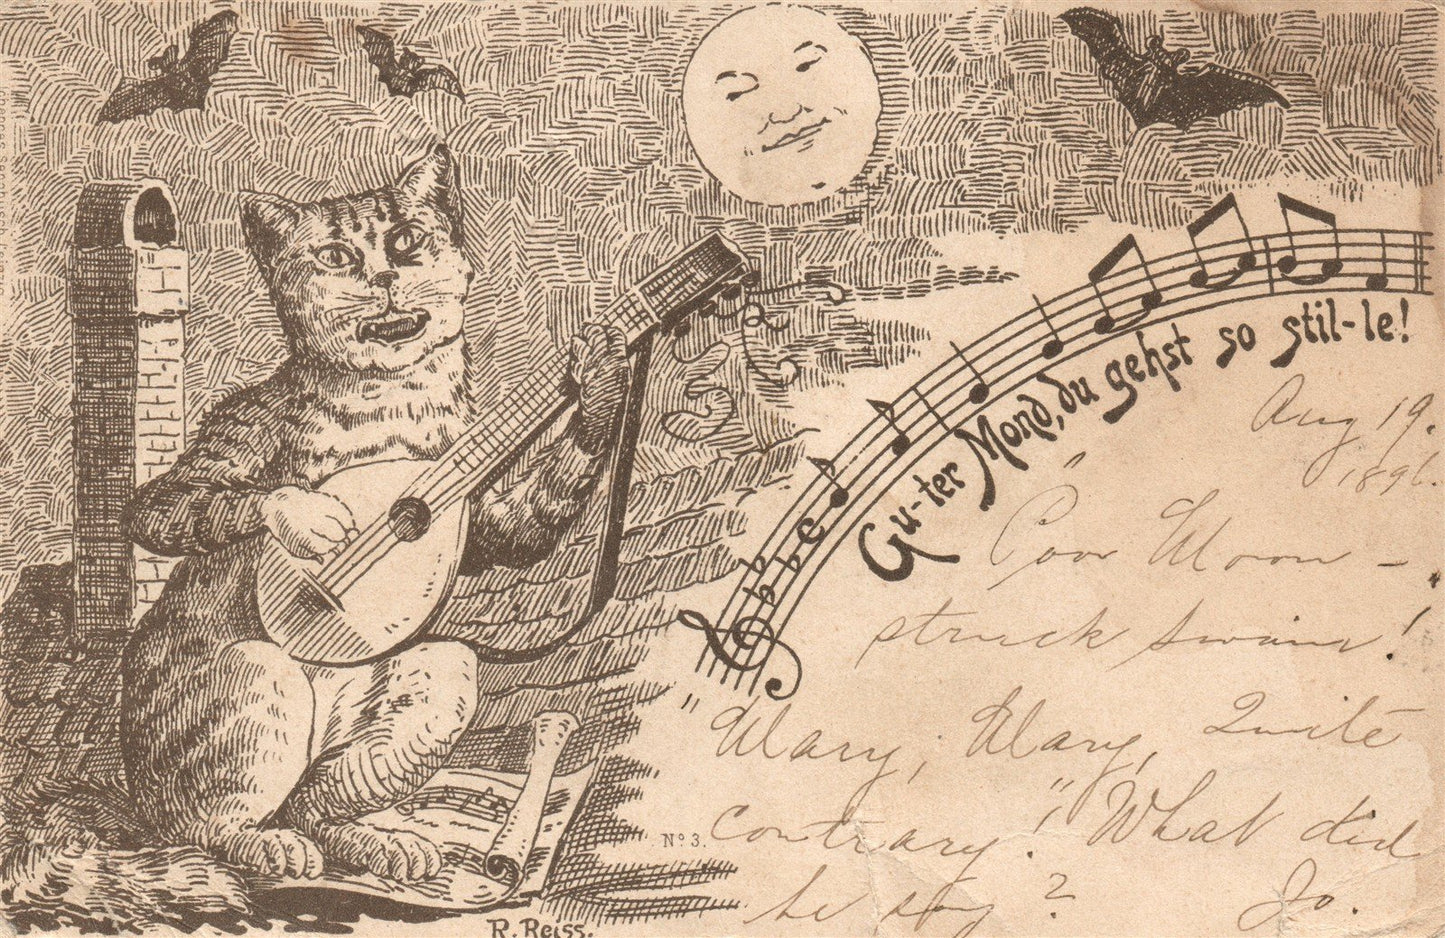 Gu-ter Mond, du gehst so stil-le!
Aug 19.
1896.
Poor Moon-
struck Swains!
"Mary, Mary, Quite
contrary!" What did
he say? Jo.
No 3.
R. Reiss.